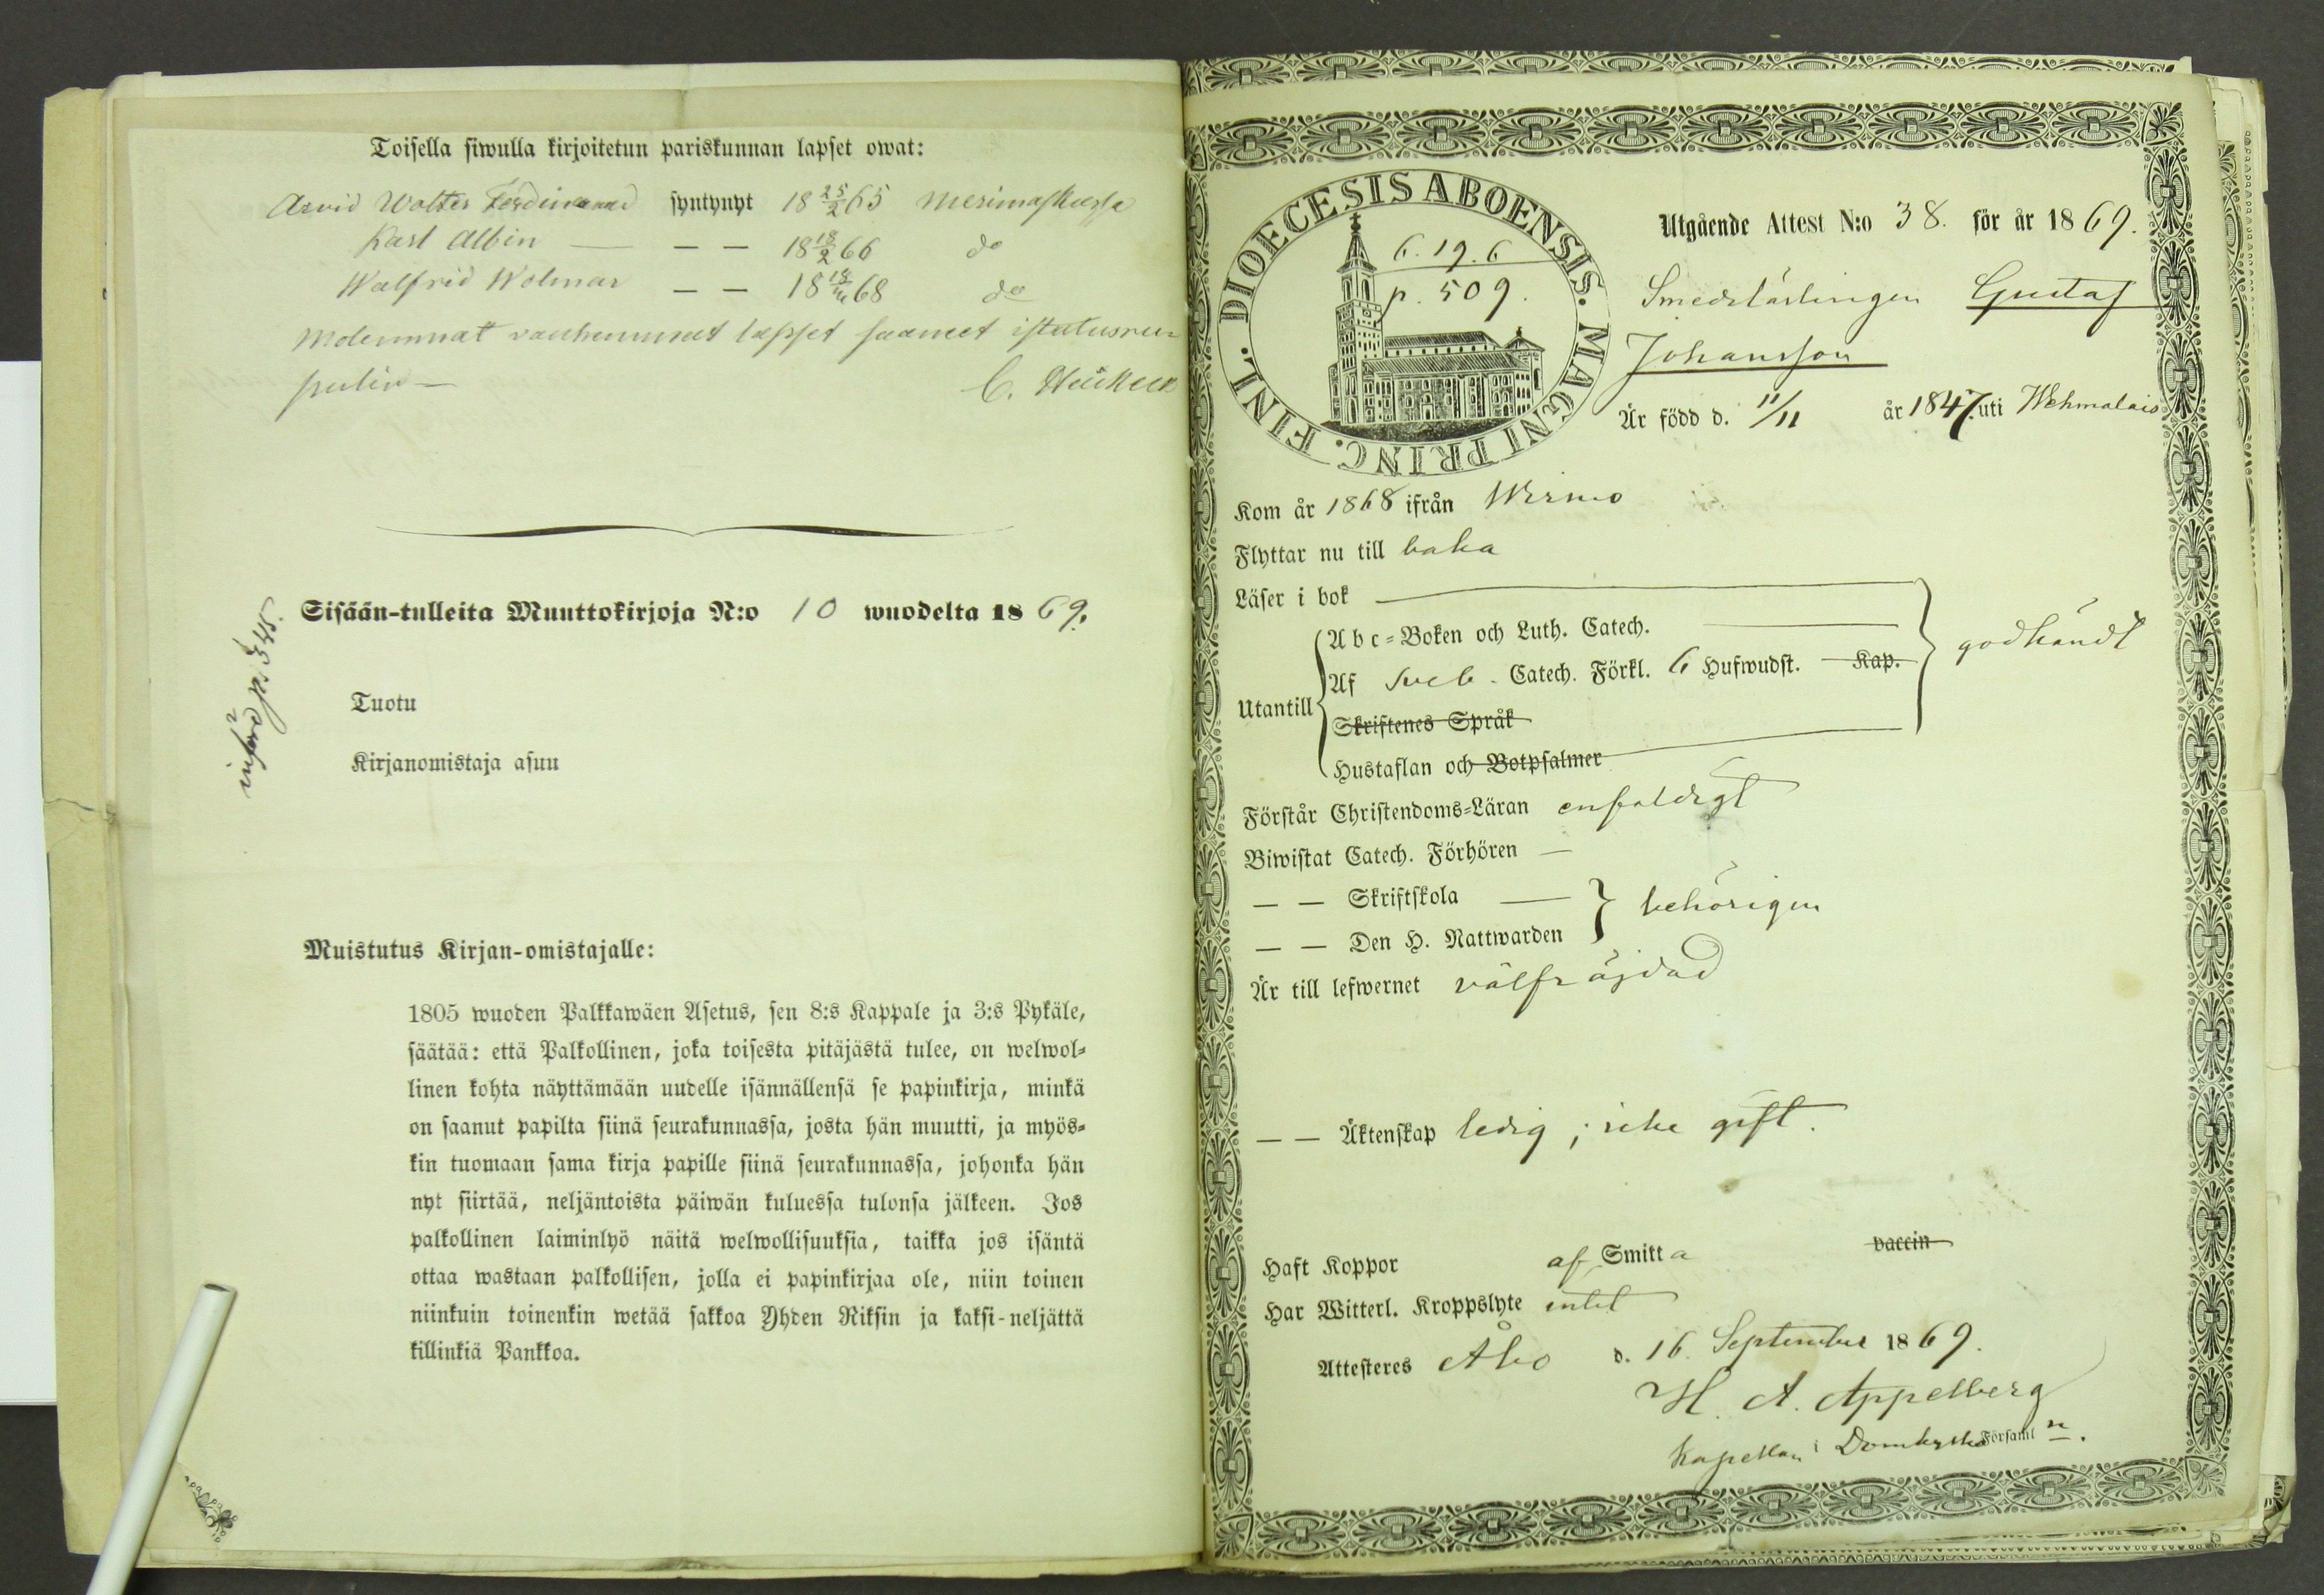 Toisella siwulla kirjoitetun pariskunnan lapset owat:
Arvid Wolter Ferdinand syntynyt 18 25/2 65 Merimaskussa
Karl Albin — — — 18 18/2 66 do
Walfrid Wolmar — — 18 68 do
Molemmat vanhemmat lapset saaneet istutusru-
pulin —
C. Heikel
Sisään-tulleita Muuttokirjoja N:o 10 wuodelta 1869.
införd p. 545.
Tuotu
Kirjanomistaja asuu
Muistutus Kirjan-omistajalle:
1805 wuoden Palkkawäen Asetus, sen 8:s Kappale ja 3:s Pykäle,
säätää: että Palkollinen, joka toisesta pitäjästä tulee, on welwol-
linen kohta näyttämään uudelle isännällensä se papinkirja, minkä
on saanut papilta siinä seurakunnassa, josta hän muutti, ja myös-
kin tuomaan sama kirja papille siinä seurakunnassa, johonka hän
nyt siirtää, neljäntoista päiwän kuluessa tulonsa jälkeen. Jos
palkollinen laiminlyö näitä welwollisuuksia, taikka jos isäntä
ottaa wastaan palkollisen, jolla ei papinkirjaa ole, niin toinen
niinkuin toinenkin wetää sakkoa Yhden Riksin ja kaksi-neljättä
killinkiä Pankkoa.
DIOECESIS ABOENSIS. MAGNI PRINC. FINL.
6. 19. 6
p. 509.
Utgående Attest N:o 38. för år 1869.
Smedslärlingen Gustaf
Johansson
Är född d. 11/11 år 1847 uti Wehmalais
Kom år 1868 ifrån Wirmo
Flyttar nu till baka
Läser i bok —
Utantill
Abc-Boken och Luth. Catech. —
Af Sveb. Catech. Förkl. 6 Hufwudst. — Kap.
Skriftenes Språk
Hustaflan och Botpsalmer
godkändt
Förstår Christendoms-Läran enfaldigt
Biwistat Catech. Förhören —
— — Skriftskola —
— — Den H. Nattwarden
behörigen
Är till lefwernet välfräjdad
— — Äktenskap ledig; icke gift.
Haft Koppor af Smitta vaccin
Har Witterl. Kroppslyte intet
Attesteres Åbo d. 16 September 1869.
H. A. Appelberg
Kapellan i Domkyrko Församl n.